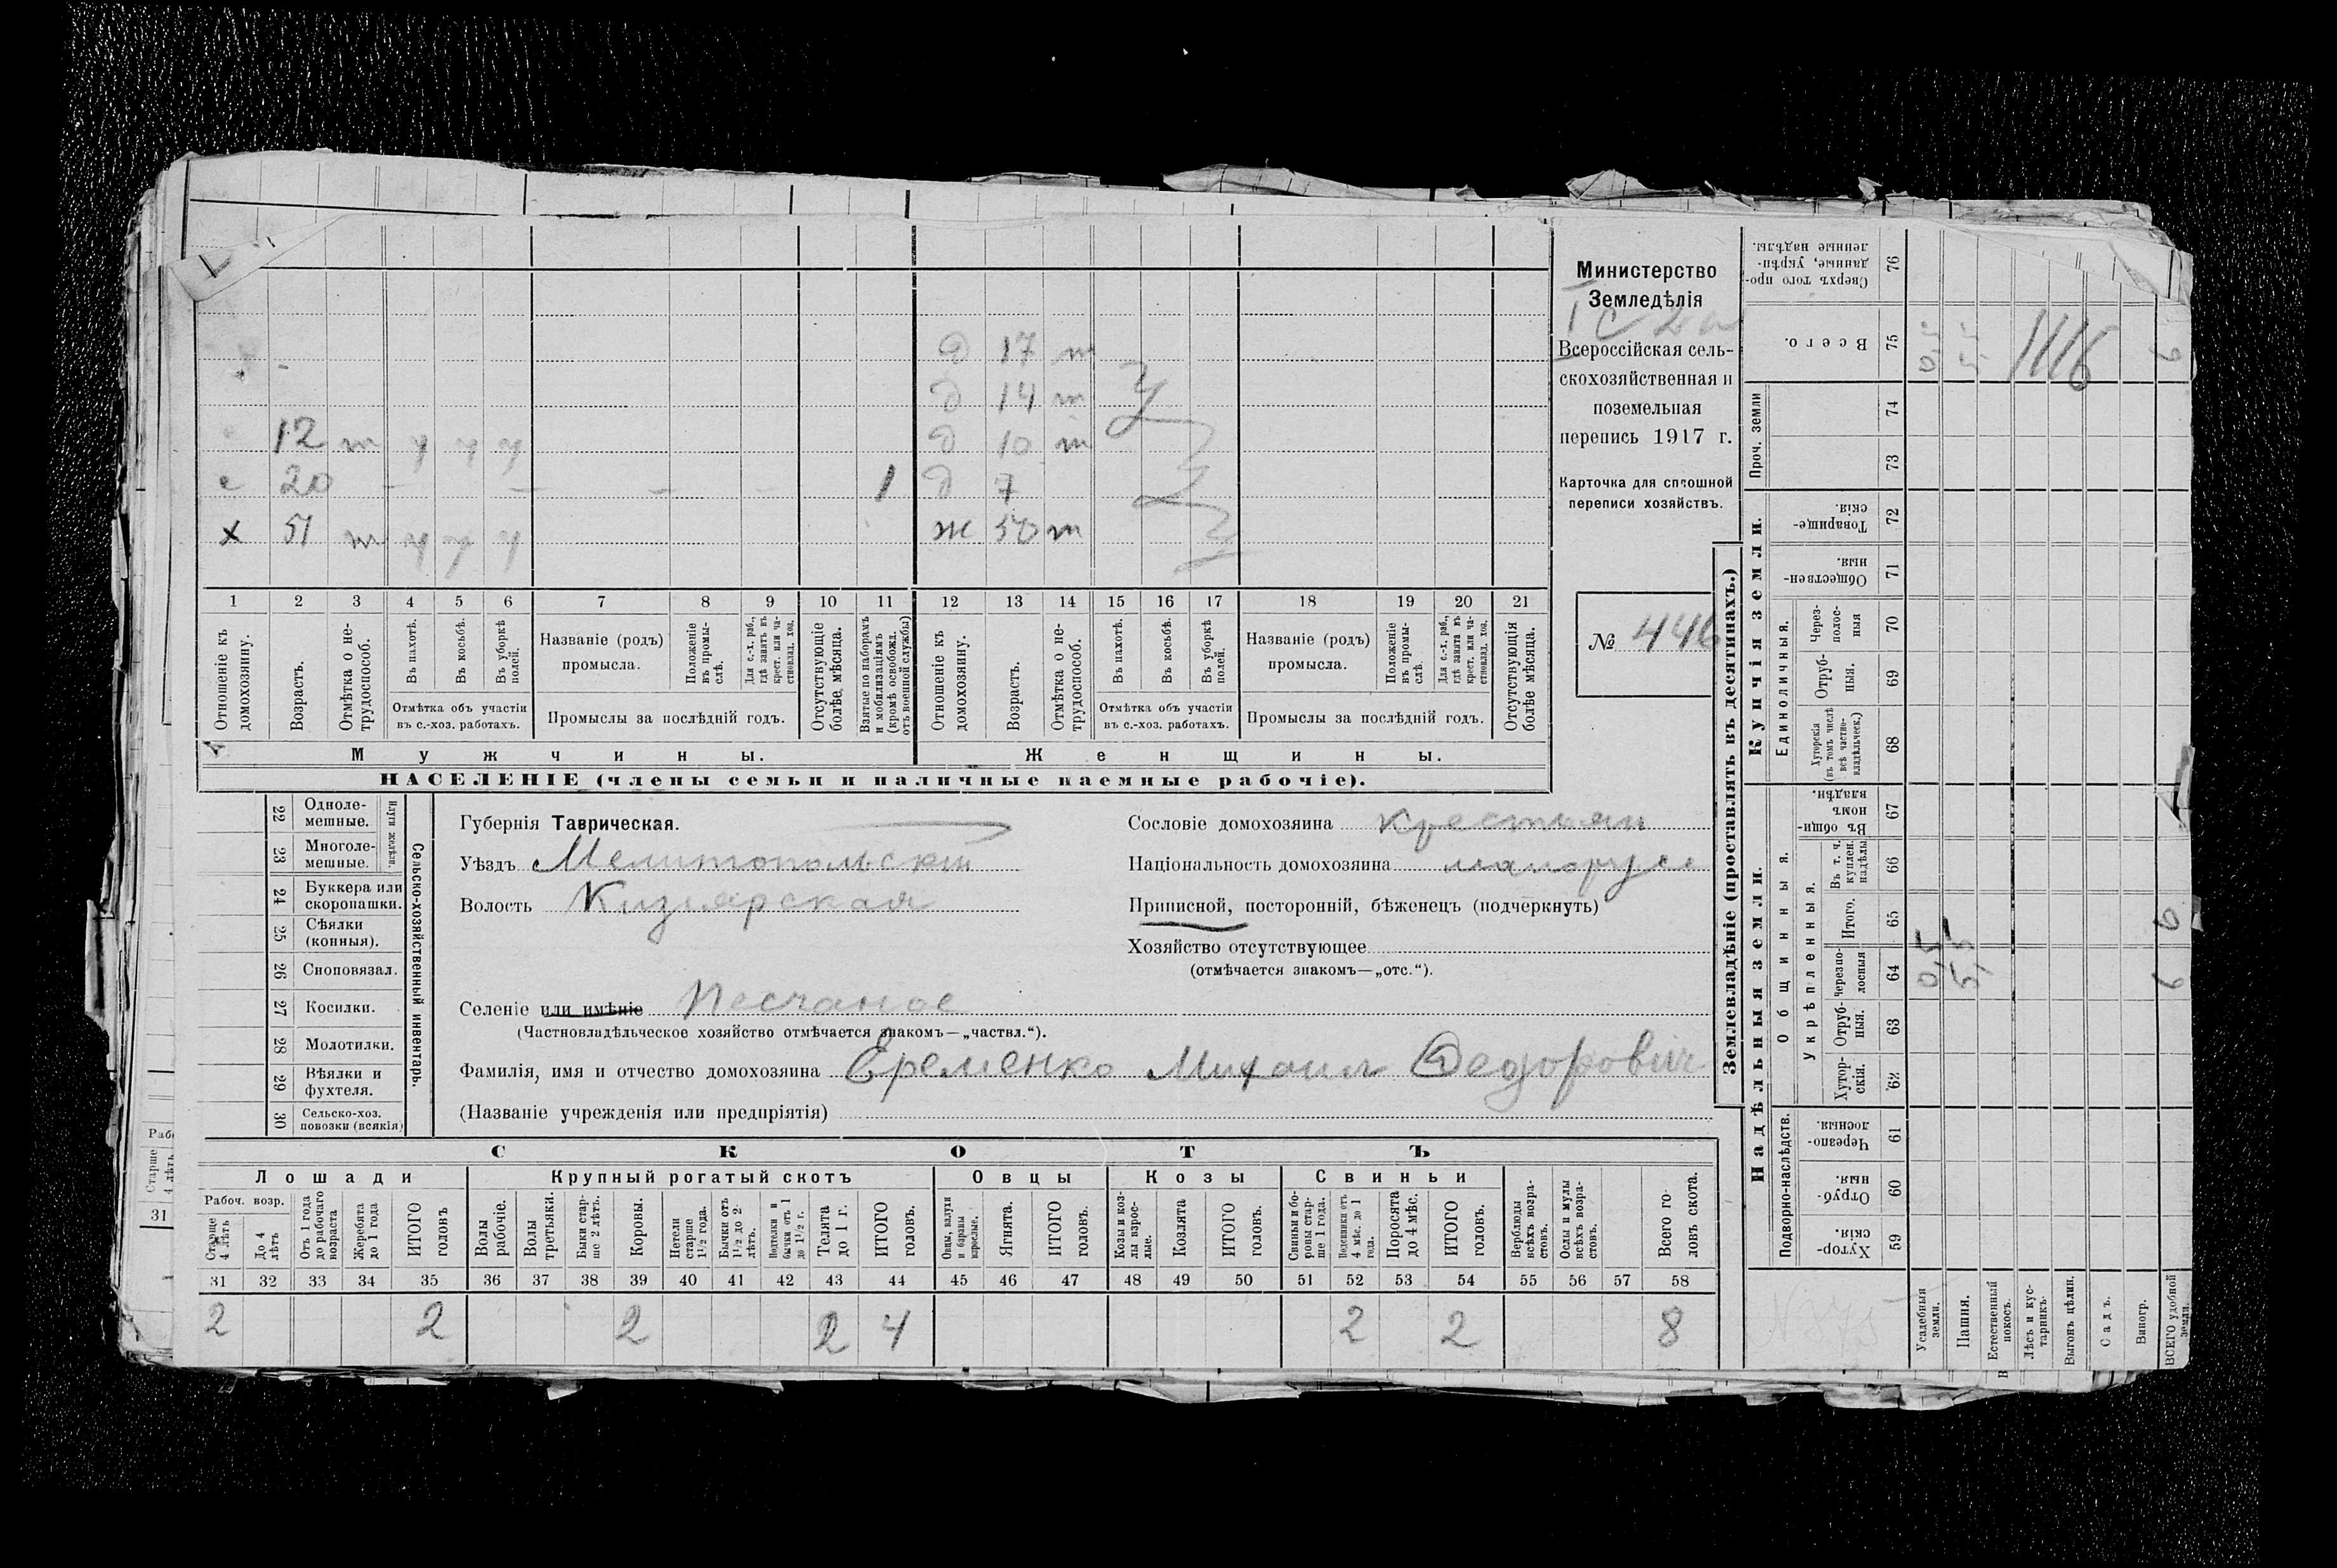 д 17 т
д 14 т
12 т у у у д 10 т
с 20 – – – – 1 д 7
х 51 т у у у ж 50 т
1 2 3 4 5 6 7 8 9 10 11 12 13 14 15 16 17 18 19 20 21
Отношеніе къ домохозяину.
Возрастъ.
Отмѣтка о нетрудоспособ.
Въ пахотѣ.
Въ косьбѣ.
Въ уборкѣ полей.
Отмѣтка объ участіи
въ с.-хоз. работахъ.
Названіе (родъ)
промысла.
Положеніе въ промыслѣ.
Для с.-х. раб., гдѣ занятъ въ крест. или частновлад. хоз.
Промыслы за послѣдній годъ.
Отсутствующіе болѣе мѣсяца.
Взятые по наборамъ и мобилизаціямъ (кромѣ освобожд. отъ военной службы)
Отношеніе къ домохозяину.
Возрастъ.
Отмѣтка о нетрудоспособ.
Въ пахотѣ.
Въ косьбѣ.
Въ уборкѣ полей.
Отмѣтка объ участіи
въ с.-хоз. работахъ.
Названіе (родъ)
промысла.
Положеніе въ промыслѣ.
Для с.-х. раб., гдѣ занята въ крест. или частновлад. хоз.
Промыслы за послѣдній годъ.
Отсутствующія болѣе мѣсяца.
Мужчины. Женщины.
НАСЕЛЕНІЕ (члены семьи и наличные наемные рабочіе).
Министерство
Земледѣлія
Всероссійская сель-
скохозяйственная и
поземельная
перепись 1917 г.
Карточка для сплошной
переписи хозяйствъ.
№ 446
22 Одноле-
мешные.
23 Многоле-
мешные.
Плуги желѣзн.
24 Буккера или
скоропашки.
25 Сѣялки
(конныя).
26 Сноповязал.
27 Косилки.
28 Молотилки.
29 Вѣялки и
фухтеля.
30 Сельско-хоз.
повозки (всякія)
Сельско-хозяйственный инвентарь.
Губернія Таврическая.
Уѣздъ Мелитопольскій
Волость Кизіярская
Селеніе или имѣніе Песчаное
(Частновладѣльческое хозяйство отмѣчается знакомъ—„частвл.“).
Фамилія, имя и отчество домохозяина Еременко Михаил Федорович
(Названіе учрежденія или предпріятія)
Сословіе домохозяина крестьян
Національность домохозяина малорусс
Приписной, посторонній, бѣженецъ (подчеркнуть)
Хозяйство отсутствующее
(отмѣчается знакомъ—„отс.“).
СКОТЪ
Лошади Крупный рогатый скотъ Овцы Козы Свиньи
Рабоч. возр.
Старше 4 лѣтъ
До 4 лѣтъ
Отъ 1 года до рабочаго возраста
Жеребята до 1 года
ИТОГО головъ
Волы рабочіе.
Волы третьяки.
Быки старше 2 лѣтъ.
Коровы.
Нетели старше 1½ года.
Бычки отъ 1½ до 2 лѣтъ.
Подтелки и бычки отъ 1 до 1½ г.
Телята до 1 г.
ИТОГО головъ.
Овцы, валухи и бараны взрослые.
Ягнята.
ИТОГО головъ.
Козы и козлы взрослые.
Козлята
ИТОГО головъ.
Свиньи и боровы старше 1 года.
Подсвинки отъ 4 мѣс. до 1 года.
Поросята до 4 мѣс.
ИТОГО головъ.
Верблюды всѣхъ возрастовъ.
Ослы и мулы всѣхъ возрастовъ.
Всего головъ скота.
31 32 33 34 35 36 37 38 39 40 41 42 43 44 45 46 47 48 49 50 51 52 53 54 55 56 57 58
2 2 2 2 4 2 2 8
Рабо
Старше 4 лѣтъ
31
Землевладѣніе (проставлять въ десятинахъ.)
Купчія земли.
Надѣльныя земли.
Сверхъ того проданные, укрѣпленные надѣлы. 76
Всего. 75
1116
Проч. земли 74
73
Товарищескія. 72
Общественныя. 71
Единоличныя.
Черезполосныя 70
Отрубныя. 69
Хуторскія (въ томъ числѣ всѣ частновладѣльческ.) 68
Общинныя.
Въ общинномъ владѣн. 67
Укрѣпленныя.
Въ т. ч. куплен. надѣлы 66
Итого. 65
Черезполосныя 64
Отрубныя. 63
Хуторскія. 62
Подворно-наслѣдств.
Черезполосныя. 61
Отрубныя. 60
Хуторскія. 59
Усадебныя земли.
Пашня.
Естественный покосъ.
Лѣсъ и кустарникъ.
Выгонъ цѣлин.
Садъ.
Виногр.
ВСЕГО удобной земли.